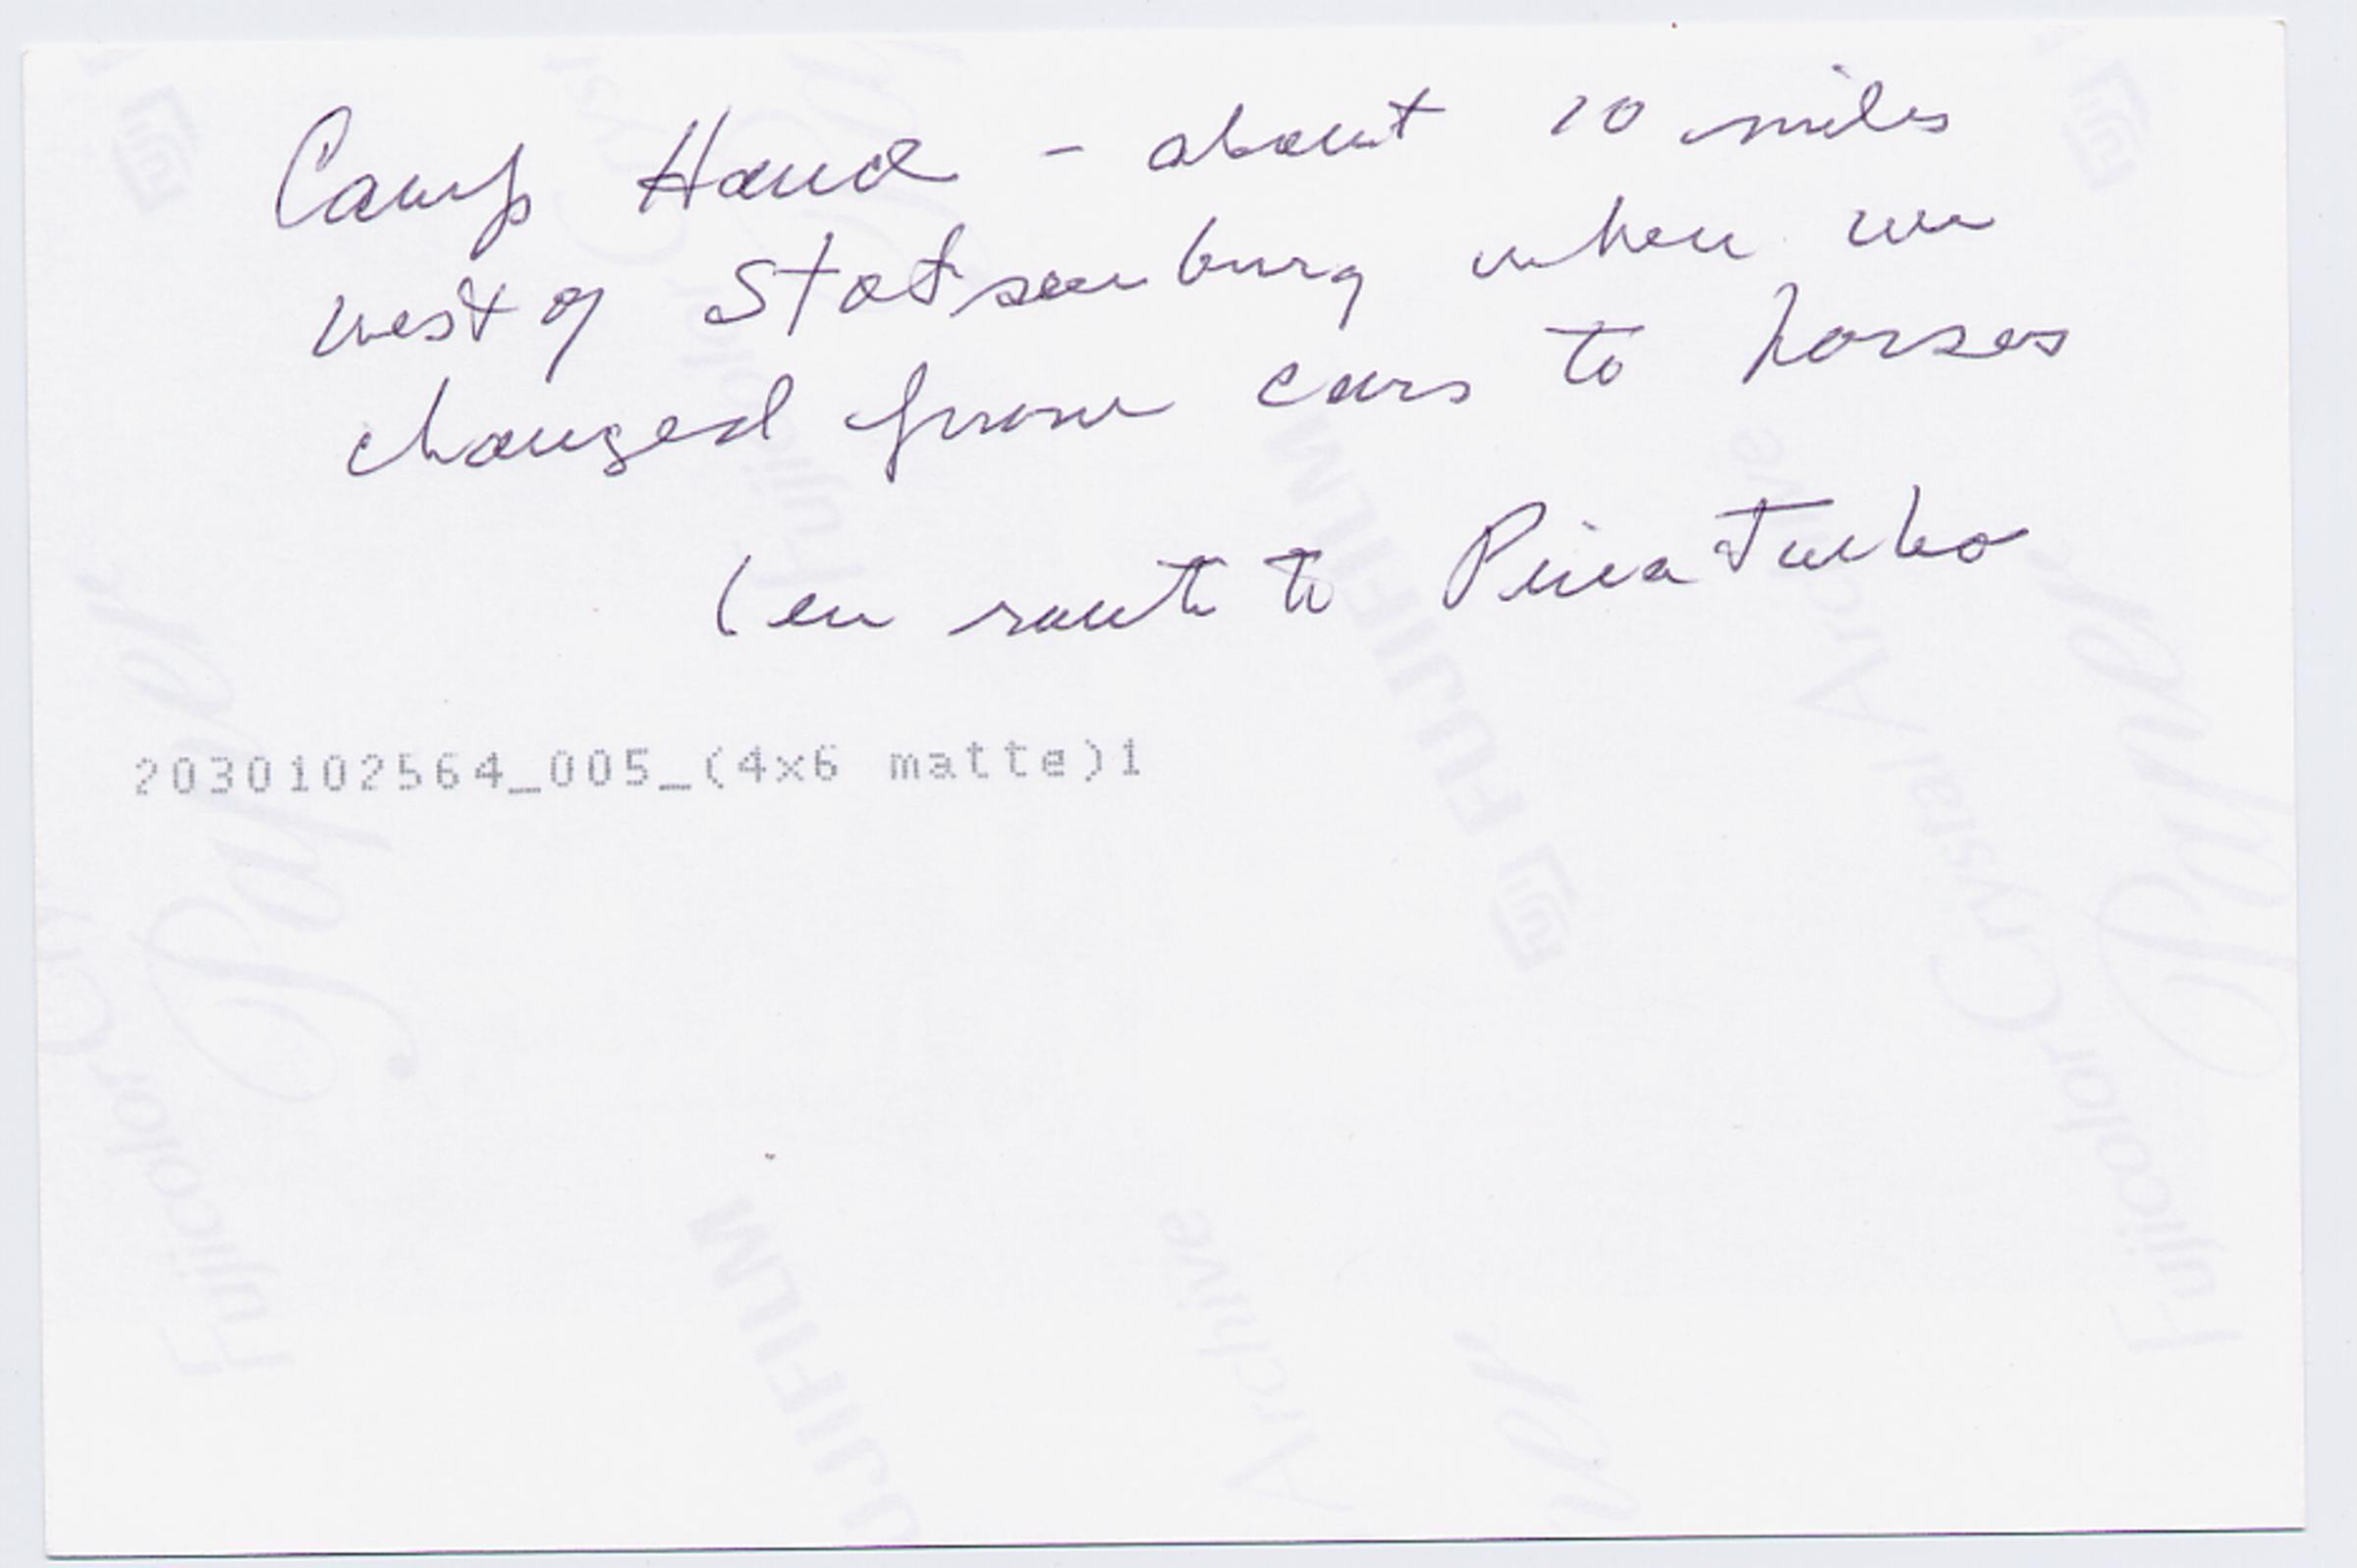 Camp Hand - about 10 miles
west of Statsenburg when we
changed from cars to horses
(en route to PinaTubo
2030102564_005_(4x6 matte)1
Fujicolor Crystal Archive
Paper
FUJIFILM